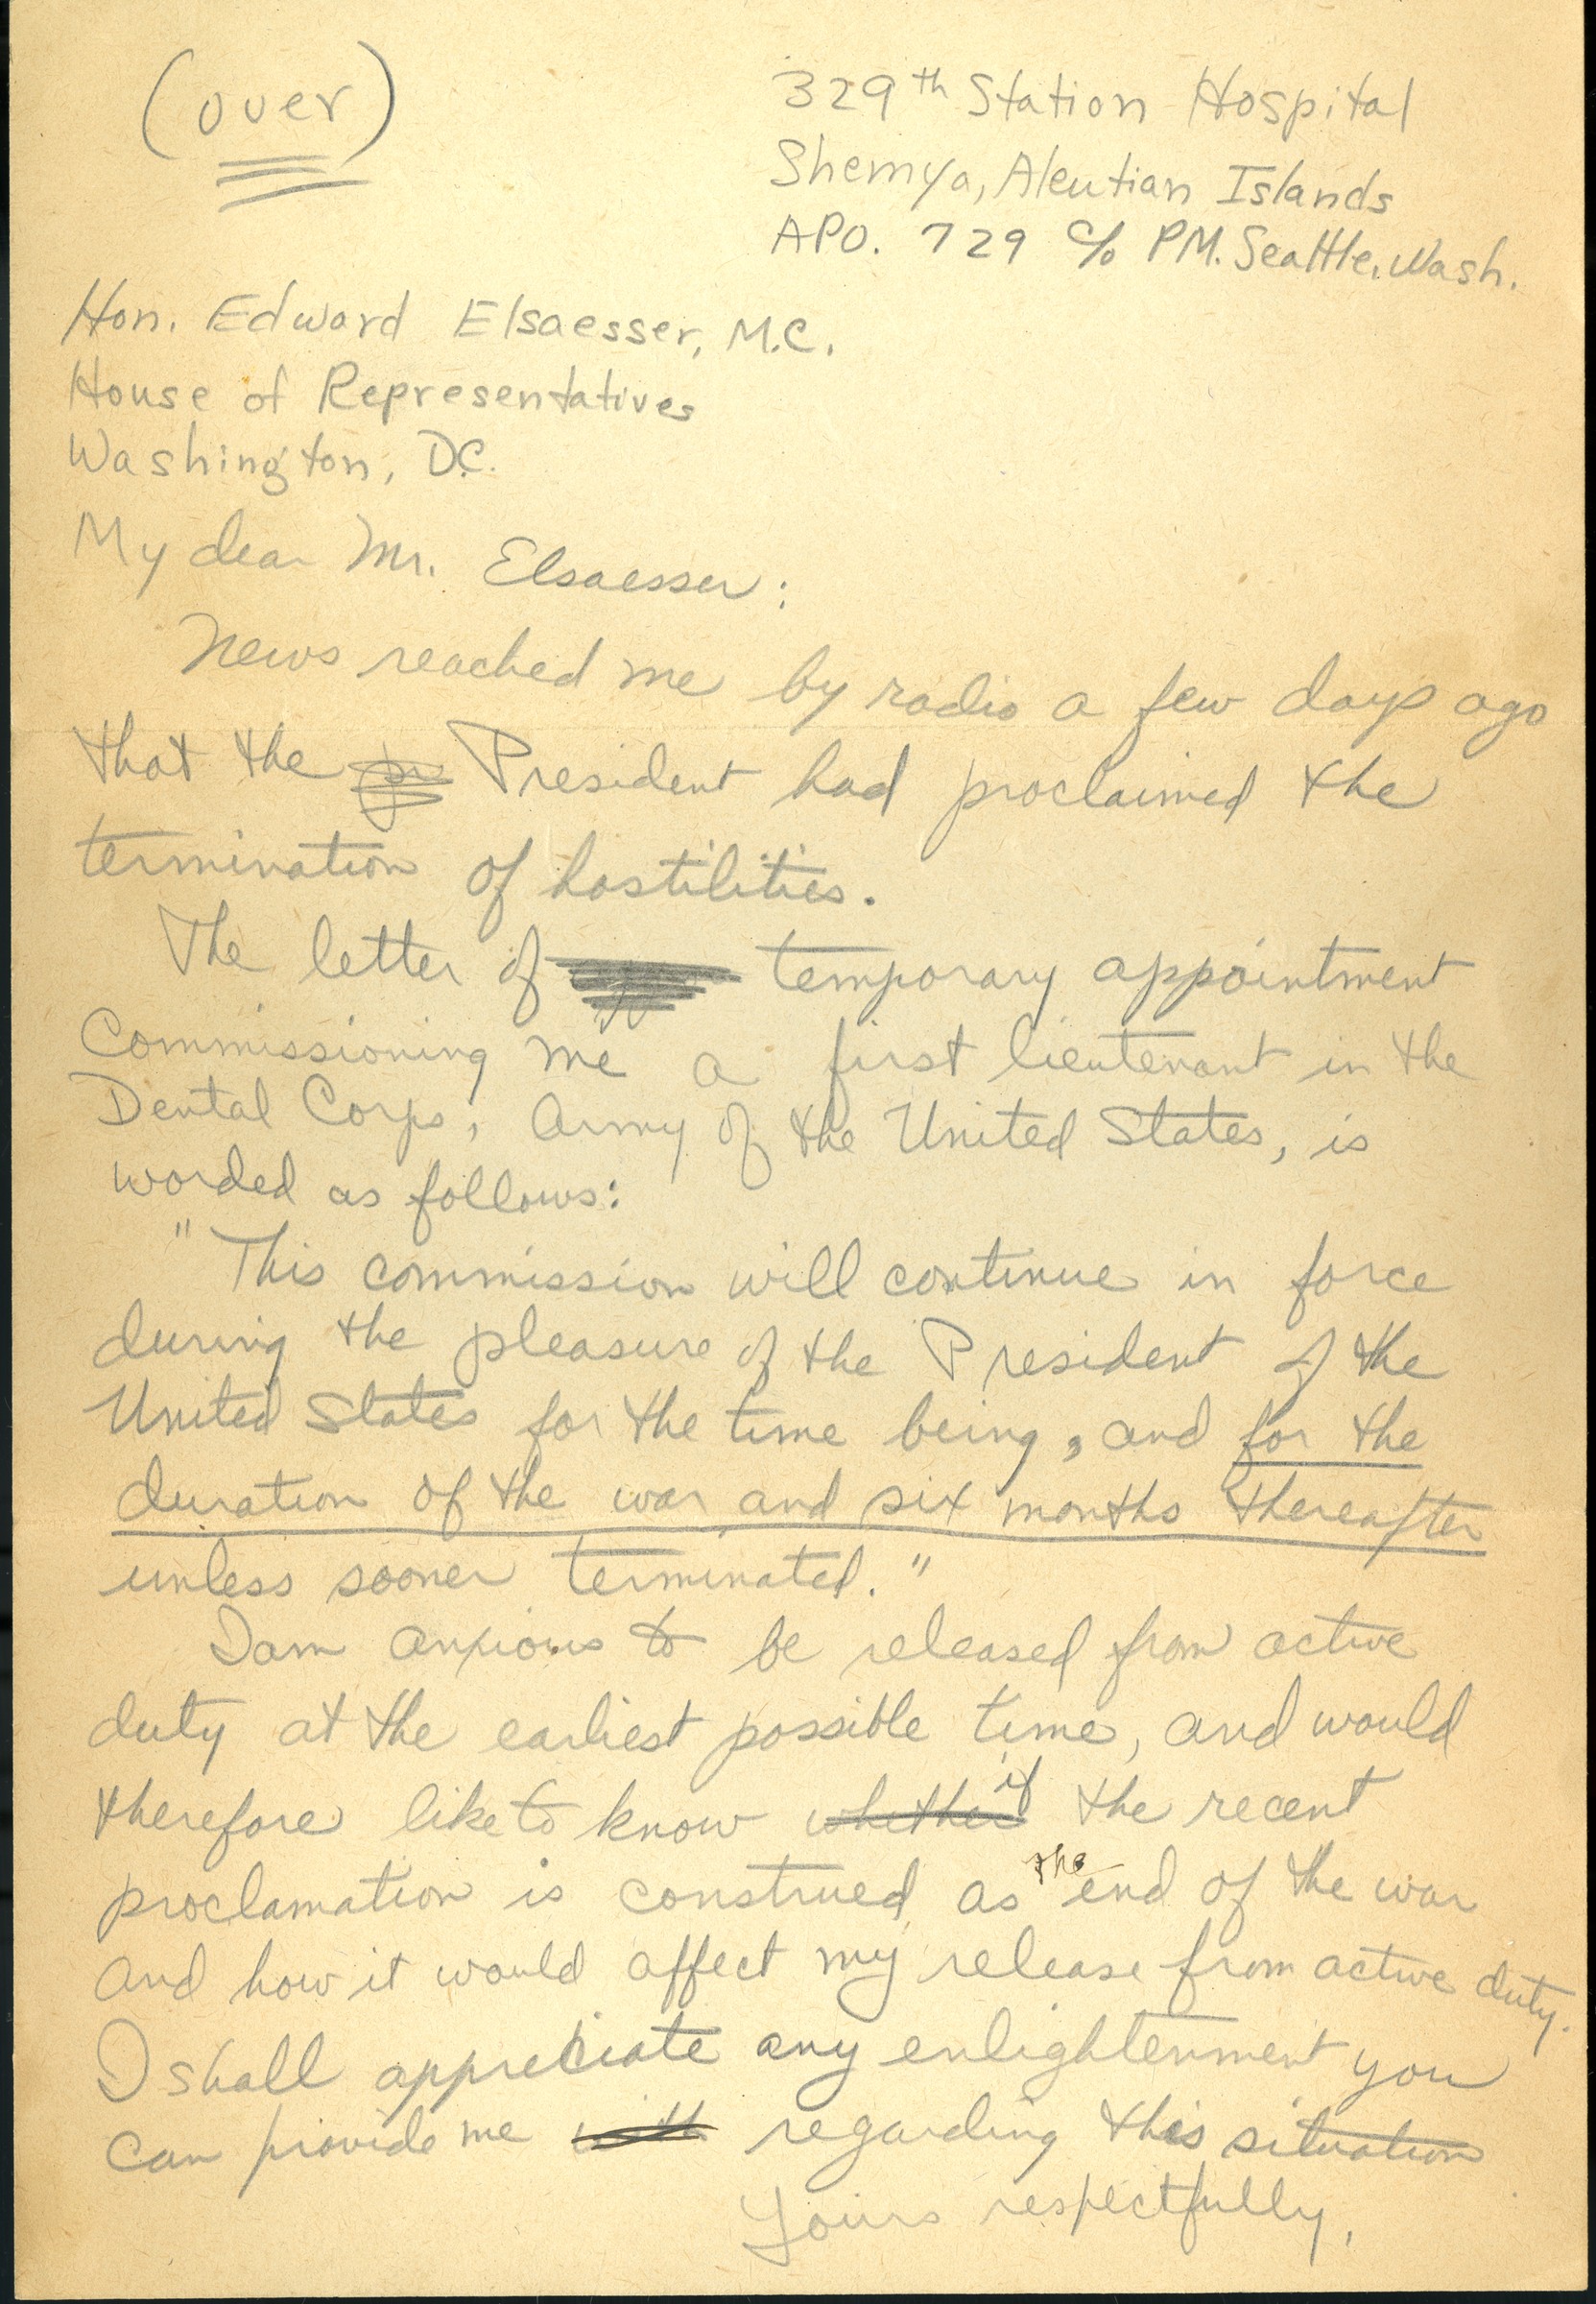 (over)
329th Station Hospital
Shemya, Aleutian Islands
APO. 729 c/o PM. Seattle, Wash.
Hon. Edward Elsaesser, M.C.
House of Representatives
Washington, D.C.
My dear Mr. Elsaesser:
News reached me by radio a few days ago
that the pr President had proclaimed the
termination of hostilities.
The letter of temporary appointment
Commissioning me a first lieutenant in the
Dental Corps, Army of the United States, is
worded as follows:
"This commission will continue in force
during the pleasure of the President of the
United States for the time being, and for the
duration of the war and six months thereafter
unless sooner terminated."
I am anxious to be released from active
duty at the earliest possible time, and would
therefore like to know whether if the recent
proclamation is construed as the end of the war
and how it would affect my release from active duty.
I shall appreciate any enlightenment you
can provide me with regarding this situation
Yours respectfully,